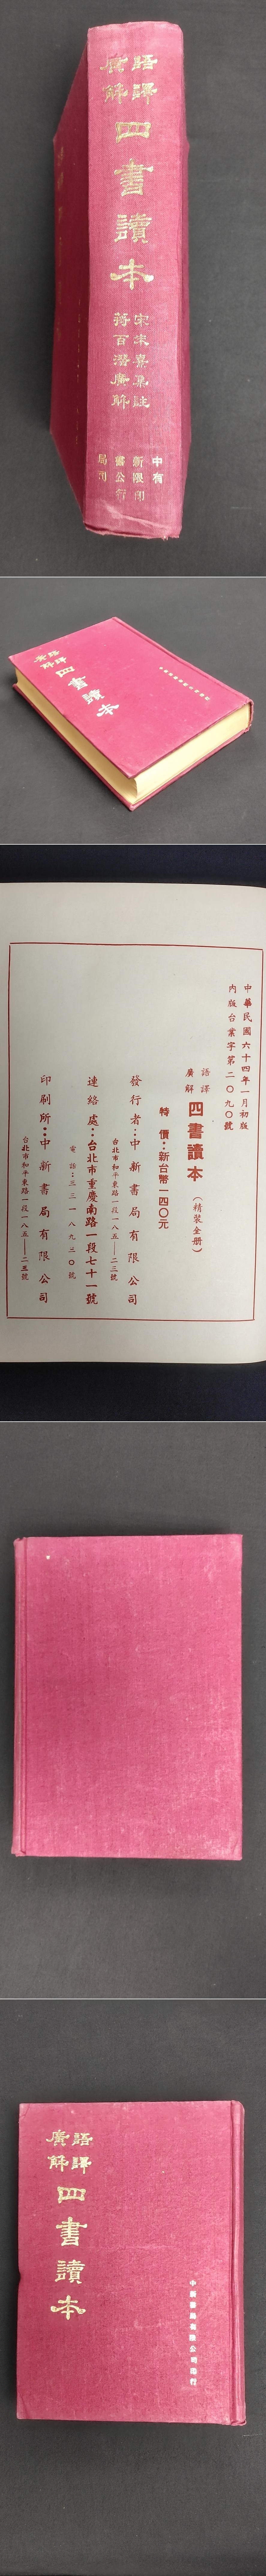 語譯
廣解
四書讀本
宋朱熹集註
蔣百潛廣解
中新書局
有限公司
印行
語譯
廣解
四書讀本
中華民國六十四年一月初版
內版台業字第二〇九〇號
語譯
廣解
四書讀本(精裝全冊)
特價:新台幣一四〇元
發行者:中新書局有限公司
台北市和平東路一段一八五——二三號
連絡處:台北市重慶南路一段七十一號
電話:三三一八九三〇號
印刷所:中新書局有限公司
台北市和平東路一段一八五——二五號
語譯
廣解
四書讀本
中新書局有限公司印行